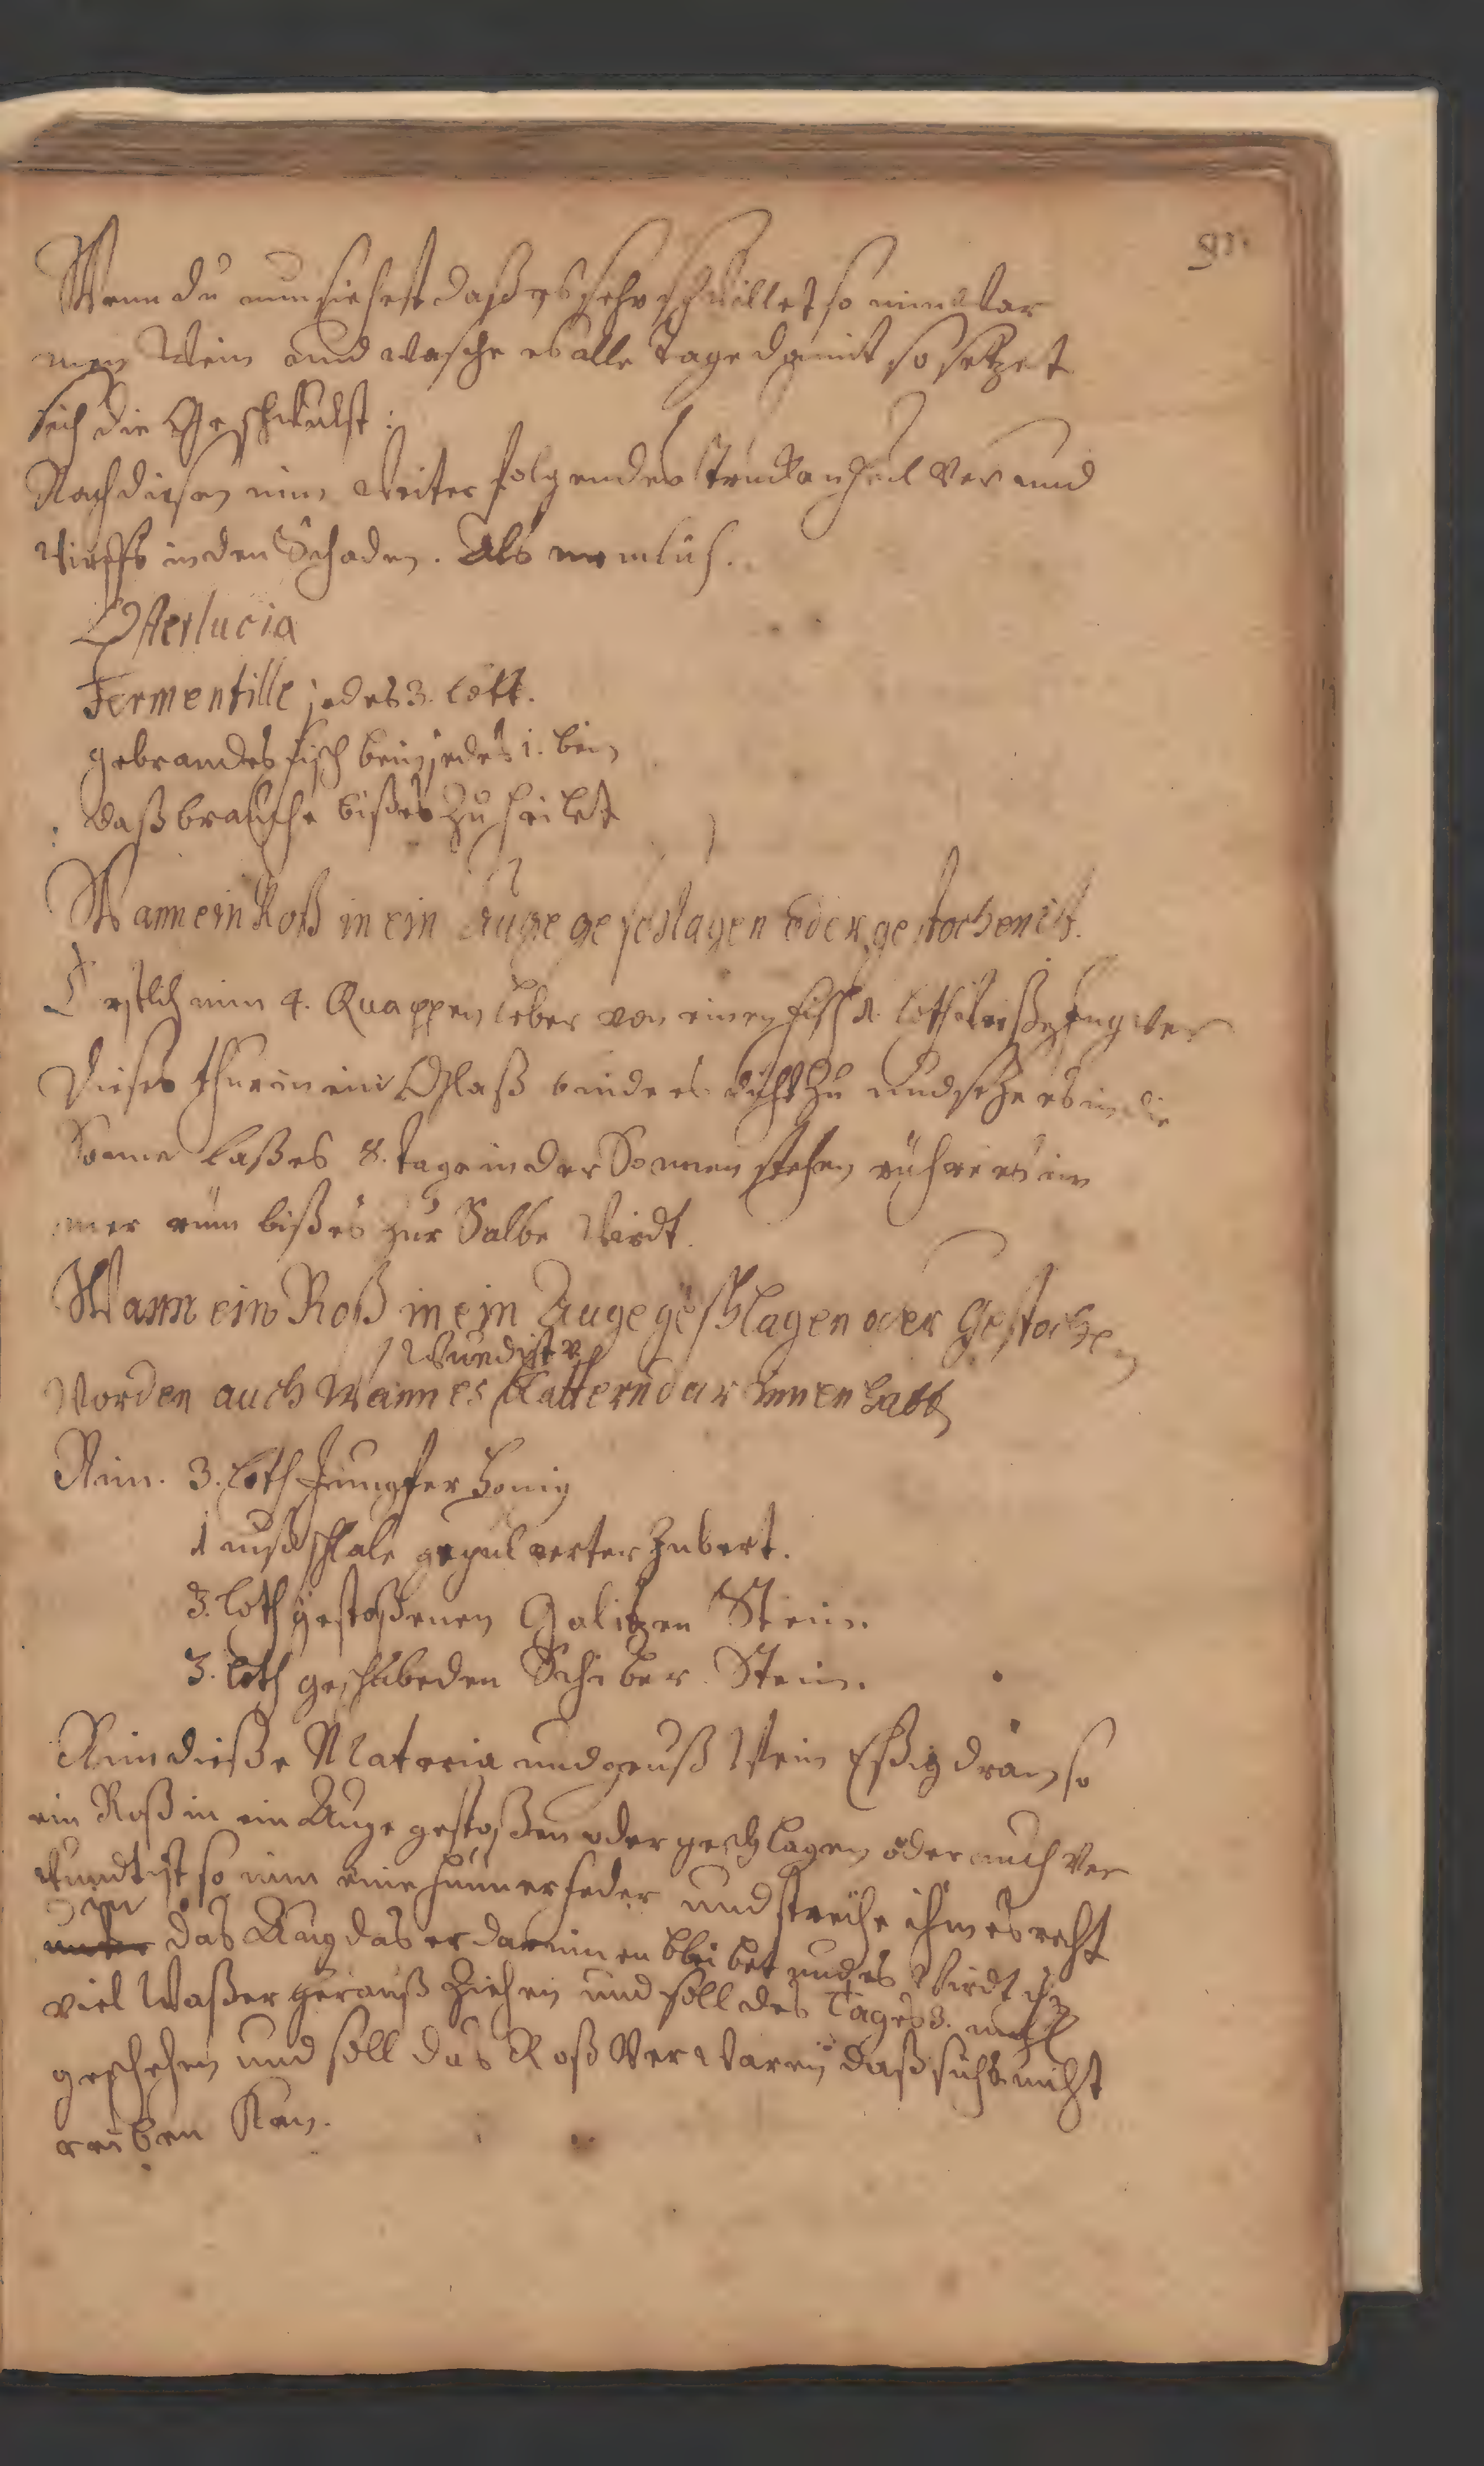 91.
Wenn du nun siehest daß es sehr schwillet so nim war
men Wein und wasche es alle tage damit so setzet
sich die Geschwulst :
Nach diesen nim weiter folgendes Pulver und
wirffs in den Schaden. Als nemlich.
Osterlucia
Termentille jedes 3. lott.
gebrandes fisch bein jedes 1. bein
daß brauche biß es zu heilet
Wann ein Roß in ein Auge geschlagen oder gestochen ist.
Erstlich nim 4. Quappen leber von einen fisch 1. loth weißen Ingwer
Dieses thue in ein Glaß binde es dicht zu und setze es in die
Sonne laß es 8. tage in der Sonnen stehen rühre es im
mer rüm biß es zur Salbe wirdt.
Wann ein Roß in ein Auge geschlagen oder Gestochen
wund ist v
worden auch wann es Blattern darinnen hatt
Nim. 3. loth Jungfer honig
1 nußschale gepulverter
3. loth gestoßenen Galitzen Stein.
3. loth geschabeden Stein.
Nim dieße Materia und geuß Wein Eßig dran so
ein Roß in ein Auge gestoßen oder geschlagen oder auch ver
wundt ist so nim eine hüner feder und streiche ihm es recht
in
unter das Aug das er darinnen bleibet und es wirdt ihm
viel Waßer herauß Ziehen und soll des Tages 3. mahl
geschehen und soll das Roß verwaren daß sichs nicht
reiben kan.